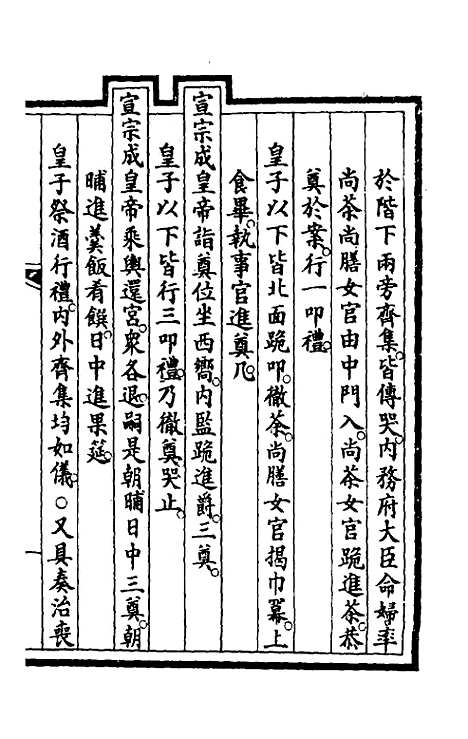 於階下兩旁齊集。皆傳哭。內務府大臣命婦。率
尚茶尚膳女官由中門入。尚茶女官跪進茶。恭
奠於案。行一叩禮。
皇子以下皆北面跪叩。徹茶。尚膳女官揭巾冪。上
食畢。執事官進奠几。
宣宗成皇帝詣奠位坐西嚮。內監跪進爵。三奠。
皇子以下皆行三叩禮。乃徹奠。哭止。
宣宗成皇帝乘輿還宮。眾各退。嗣是朝晡日中三奠。朝
晡進羹飯肴饌。日中進果筵。
皇子祭酒行禮。內外齊集均如儀。○又具奏治喪